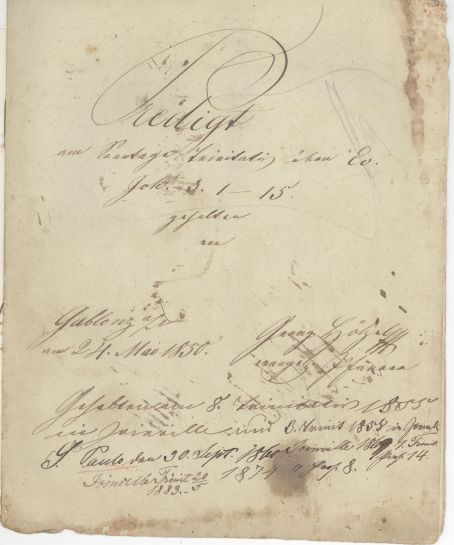 Predigt
am Sonntage Trinitatis über Ev.
Joh. 3. 1 – 15.
gehalten
in
Gablonz a/
am 24. Mai 1850.
Georg Hölzel
evangel. Pfarrer
Gehalten am 8. Trinitatis 1855
in Joinville und 8. Trinit 1858 in
S. Paulo den 30. Sept. 1860 Joinville 1869
1874 " 8.
14
Joinville Trinit 20
1883